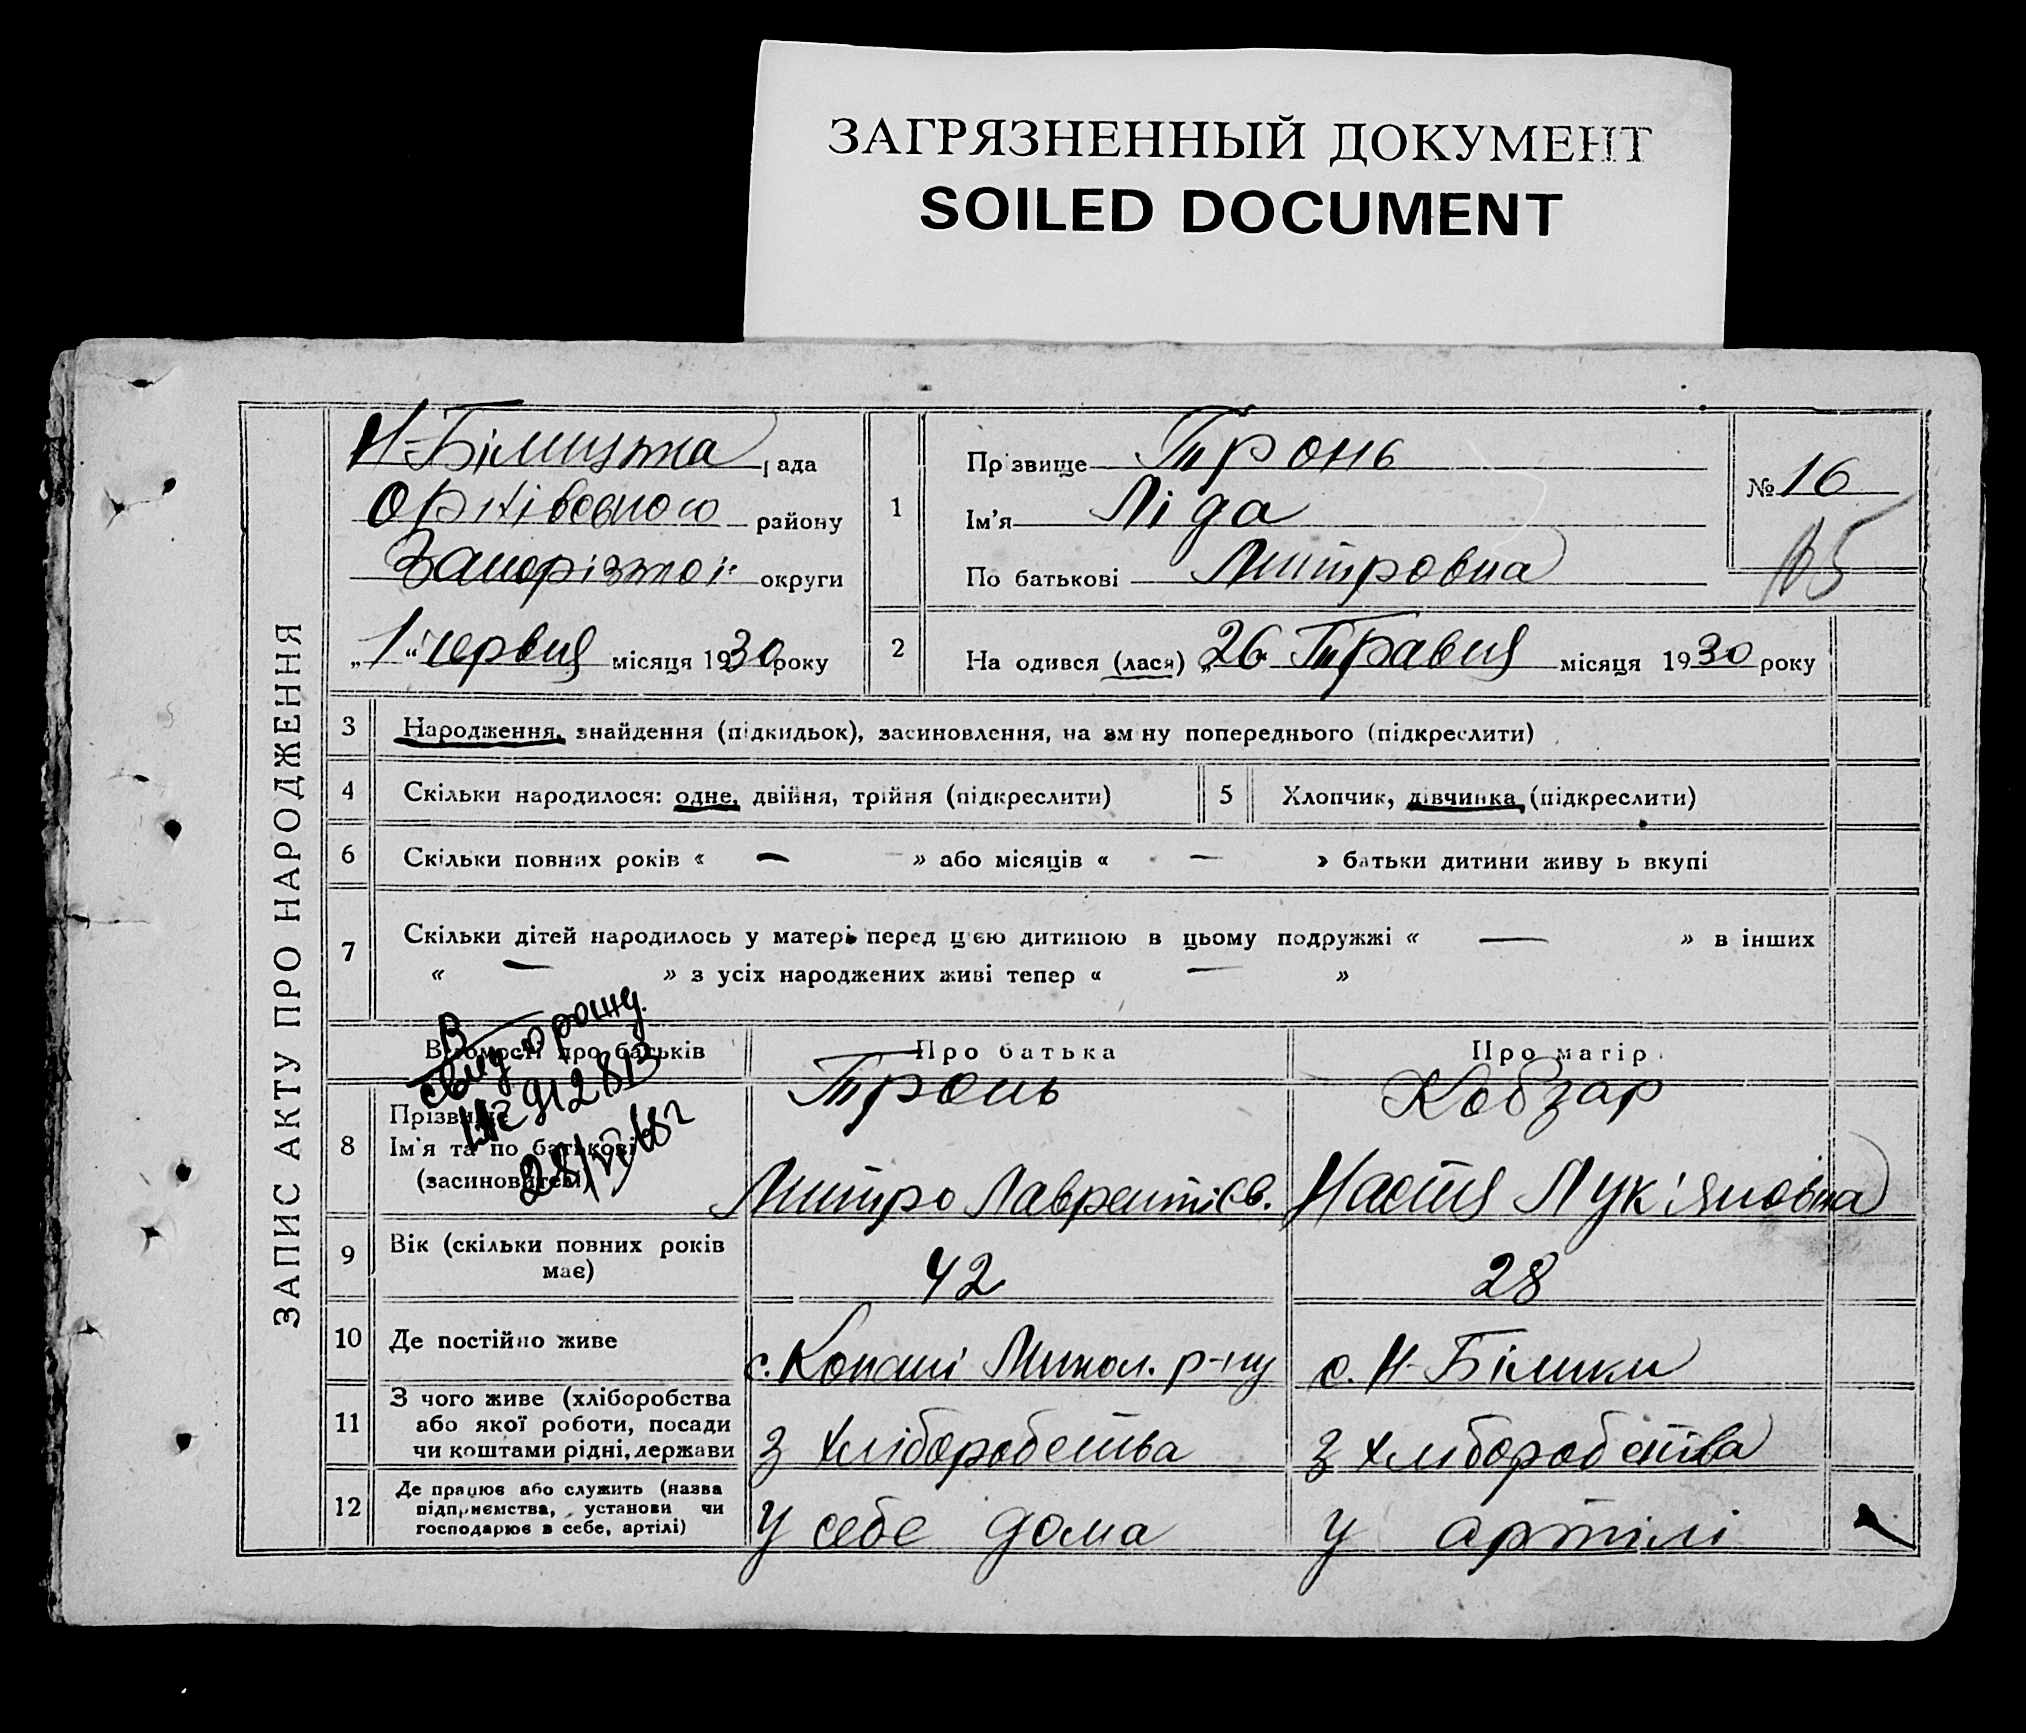 ЗАГРЯЗНЕННЫЙ ДОКУМЕНТ
SOILED DOCUMENT
ЗАПИС АКТУ ПРО НАРОДЖЕННЯ
рада
району
Запорізької округи
„1“ червня місяця 1930 року
1
Прізвище Тронь
Ім'я Ліда
По батькові Митровна
№ 16
2
Народився (лася) „26 Травня місяця 1930 року
3 Народження, знайдення (підкидьок), засиновлення, на зміну попереднього (підкреслити)
4 Скільки народилося: одне, двійня, трійня (підкреслити)
5 Хлопчик, дівчинка (підкреслити)
6 Скільки повних років « — » або місяців « — » батьки дитини живуть вкупі
7 Скільки дітей народилось у матері перед цією дитиною в цьому подружжі « — » в інших
« — » з усіх народжених живі тепер « — »
Відомості про батьків
Про батька
Про матір
8 Прізвище
Ім'я та по батькові
(засновителі)
Тронь
Митро Лаврентієв.
Кобзар
Настя Лук'яновна
9 Вік (скільки повних років має)
42
28
10 Де постійно живе
с. Копані Микол. р-ну
с. Н-Білики
11 З чого живе (хліборобства
або якої роботи, посади
чи коштами рідні, держави
з хліборобства
з хліборобства
12 Де працює або служить (назва
підприємства, установи чи
господарює в себе, артілі)
У себе дома
У артілі